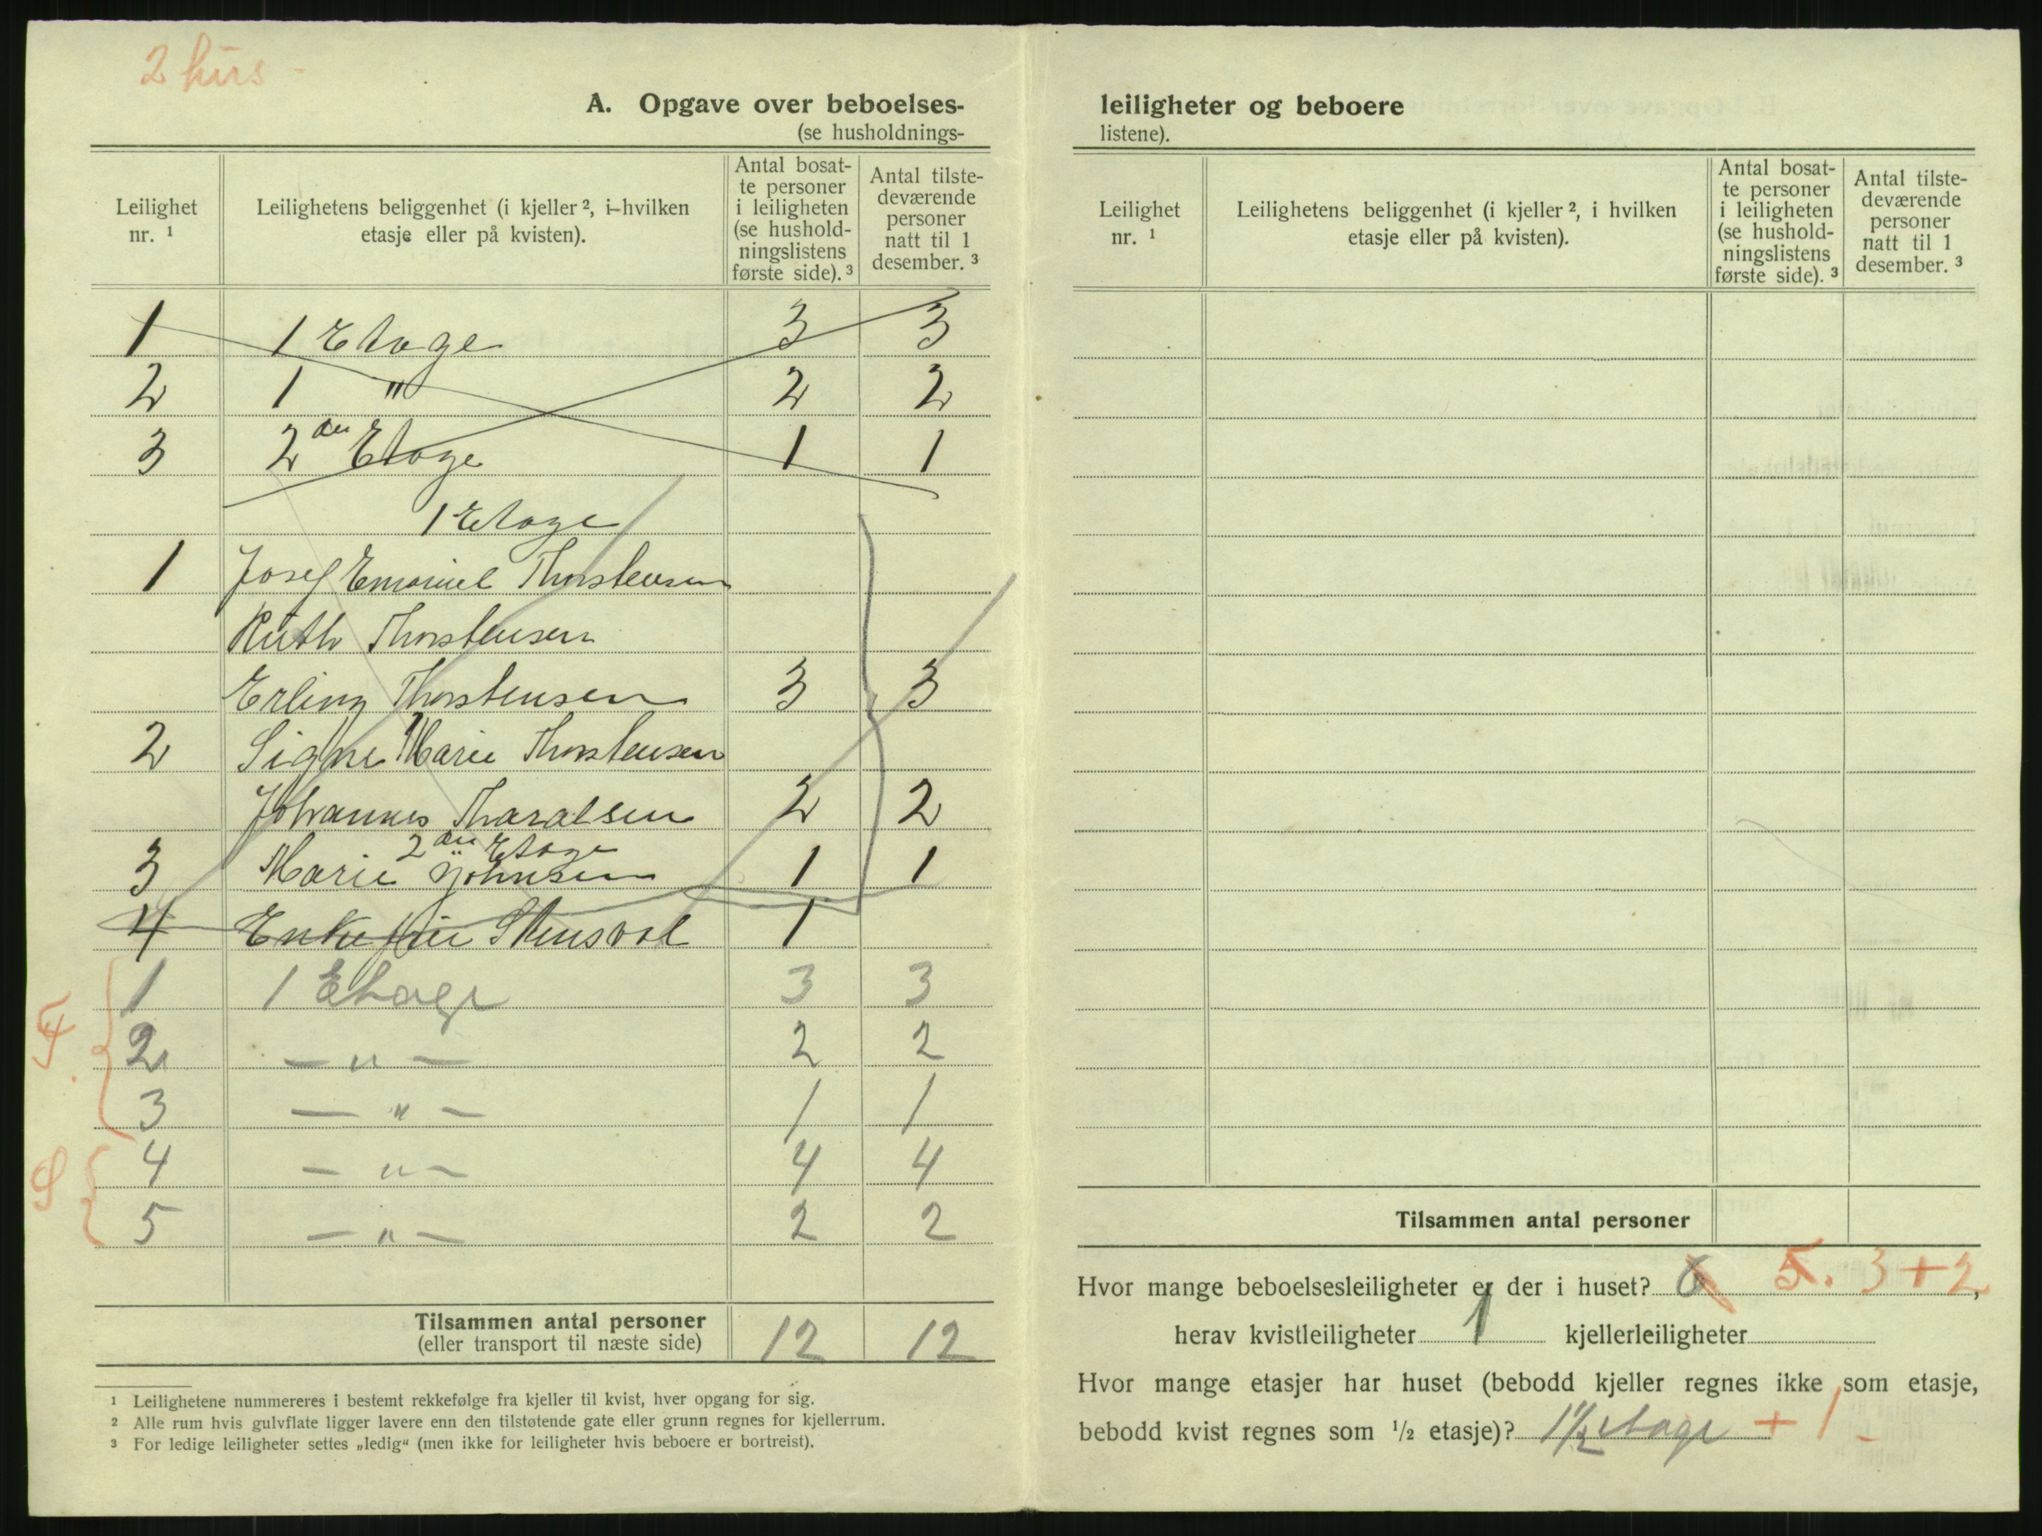 2 hus -
A. Opgave over beboelses-
(se husholdnings-
Leilighet nr. ¹
Leilighetens beliggenhet (i kjeller ², i hvilken etasje eller på kvisten).
Antal bosat-te personer i leiligheten (se hushold-ningslistens første side). ³
Antal tilste-deværende personer natt til 1 desember. ³
1 1 Etage 3 3
2 1 " 2 2
3 2den Etage 1 1
1 Etage
1 Josef Emanuel Thorstensen
Ruth Thorstensen
Erling Thorstensen 3 3
2 Signe Marie Thorstensen
Johannes Tharalsen 2 2
2den Etage
3 Marie Johnsen 1 1
4 Enkefrue Stensvol 1
1 1 Etage 3 3
2 — " — 2 2
3 — " — 1 1
4 — " — 4 4
5 — " — 2 2
Tilsammen antal personer 12 12
(eller transport til næste side)
¹ Leilighetene nummereres i bestemt rekkefølge fra kjeller til kvist, hver opgang for sig.
² Alle rum hvis gulvflate ligger lavere enn den tilstøtende gate eller grunn regnes for kjellerrum.
³ For ledige leiligheter settes „ledig“ (men ikke for leiligheter hvis beboere er bortreist).
leiligheter og beboere
listene).
Leilighet nr. ¹
Leilighetens beliggenhet (i kjeller ², i hvilken etasje eller på kvisten).
Antal bosat-te personer i leiligheten (se hushold-ningslistens første side). ³
Antal tilste-deværende personer natt til 1 desember. ³
Tilsammen antal personer
Hvor mange beboelsesleiligheter er der i huset? 6 5. 3+2,
herav kvistleiligheter 1 kjellerleiligheter
Hvor mange etasjer har huset (bebodd kjeller regnes ikke som etasje,
bebodd kvist regnes som ½ etasje)? 1½ etage + 1 -